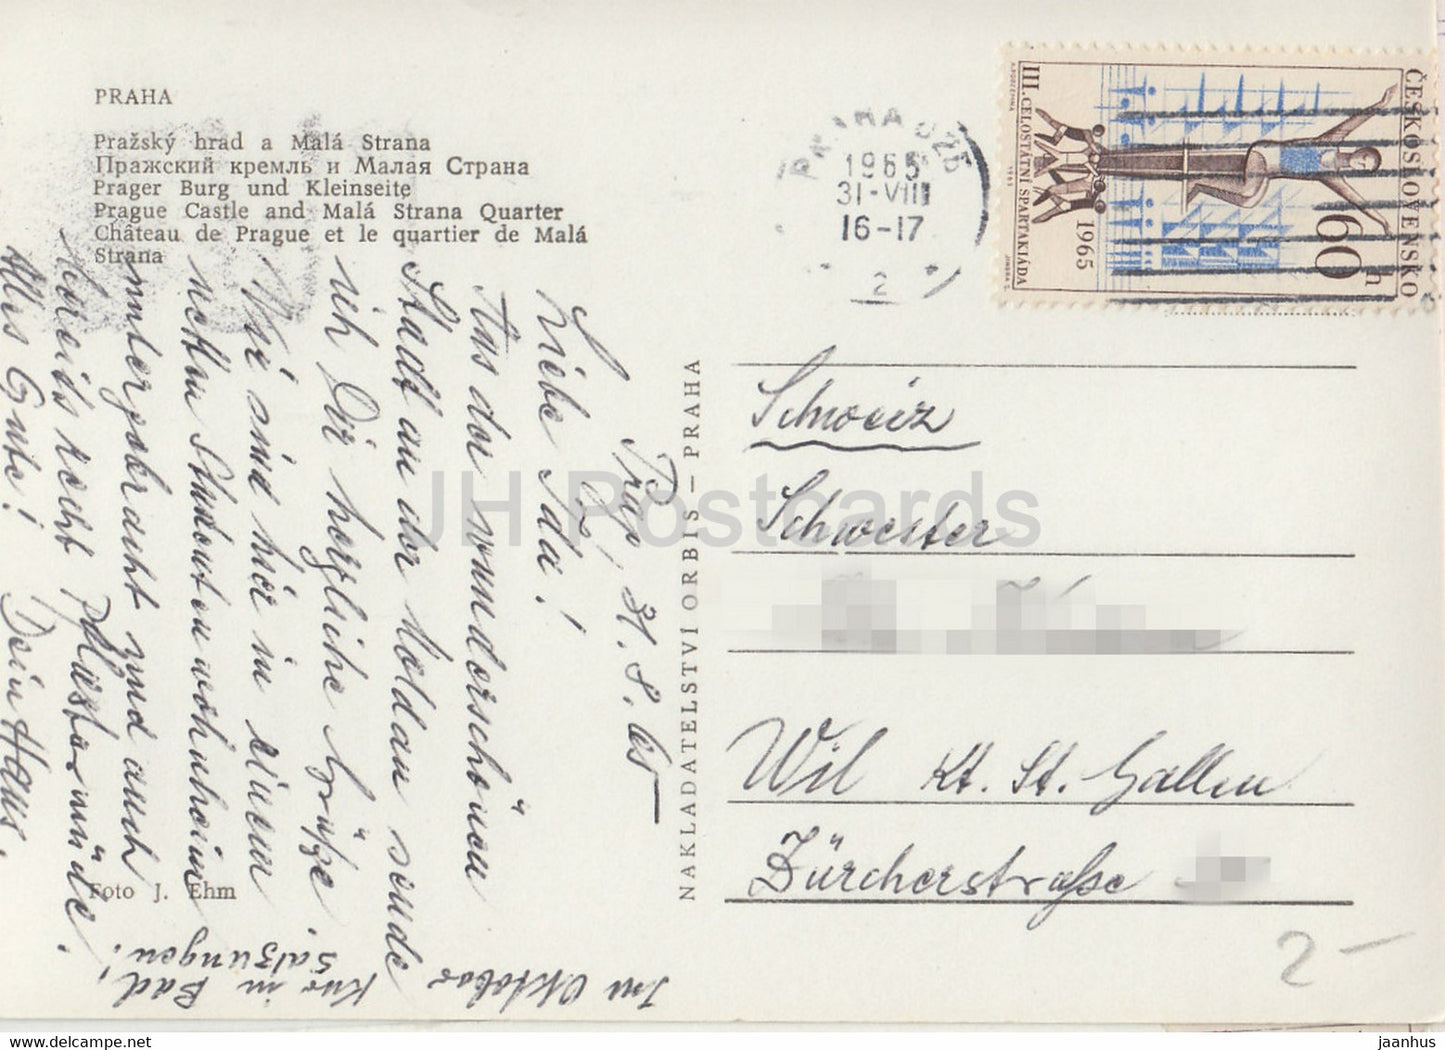 PRAHA
Pražský hrad a Malá Strana
Пражский кремль и Малая Страна
Prager Burg und Kleinseite
Prague Castle and Malá Strana Quarter
Château de Prague et le quartier de Malá
Strana
Foto J. Ehm
NAKLADATELSTVÍ ORBIS — PRAHA
PRAHA 025
1965
31-VIII
16-17
2
ČESKOSLOVENSKO
60 h
1965
III. CELOSTÁTNÍ SPARTAKIÁDA 1965
Prag, 31.8.65
Liebe Ida!
Aus der wunderschönen
Stadt an der Moldau sende
ich Dir herzliche Grüße.
Wir sind hier in einem
netten Studentenwohnheim
untergebracht und auch
bereits recht pflastermüde.
Alles Gute! Dein Hans.
Im Oktober
Kur in Bad
Salzungen!
Schweiz
Schwester
Wil Kt. St. Gallen
Zürcherstraße
2-
JH Postcards
HipPostcard.net
jaanhus